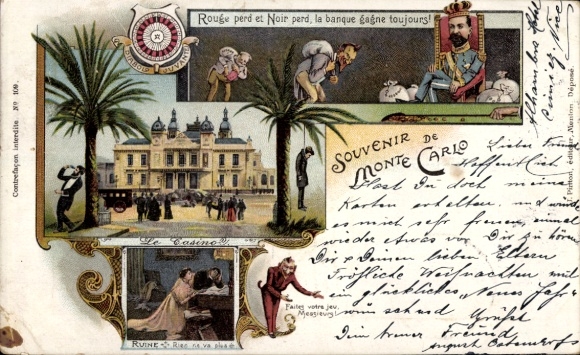 Rouge perd et Noir perd, la banque gagne toujours!
DEO JUVANTE
Contrefaçon interdite. No 109.
SOUVENIR DE
MONTE CARLO
Le Casino
RUINE Rien ne va plus
Faites votre jeu,
Messieurs!
éditeur, Menton. Déposé.
Alhambra Hotel
Nice
Lieber Freund
Hoffentlich
Hast Du doch meine
Karten erhalten und würde
es mich sehr freuen, einmal
wieder etwas von Dir zu hören
Dir & Deinen lieben Eltern
Fröhliche Weihnachten und
ein glückliches "Neues Jahr"
wünschend Grüßt
Dein treuer Freund
August